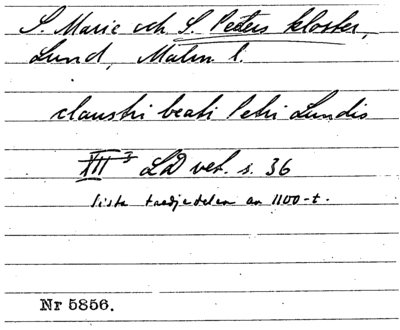 S. Marie och S. Peters kloster,
Lund, Malm. l.
claustri beati Petri Lundis
XII 3 LD vet. s. 36
sista tredjedelen av 1100-t.
Nr 5856.